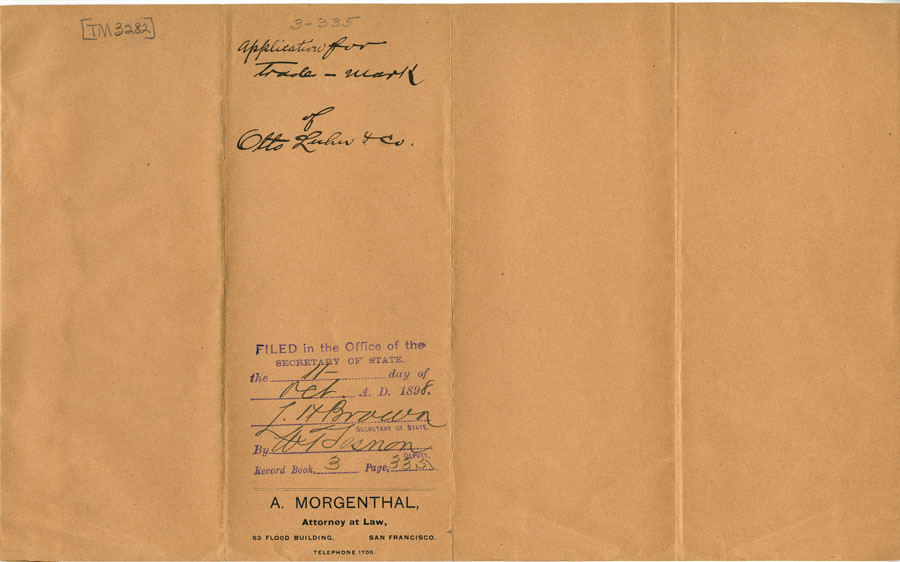 [TM 3282]
3-335
Application for
Trade-mark
of
Otto Luhn & Co.
FILED in the Office of the
SECRETARY OF STATE.
the 11- day of
Oct. A. D. 1898.
L. H. Brown
SECRETARY OF STATE.
By
DEPUTY.
Record Book, 3 Page, 335
A. MORGENTHAL,
Attorney at Law,
63 FLOOD BUILDING, SAN FRANCISCO.
TELEPHONE 1705.